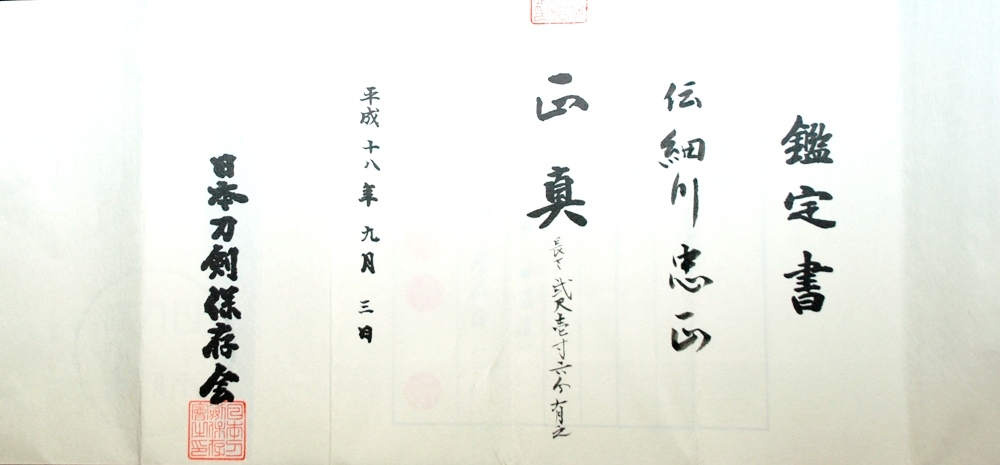 鑑定書
伝細川忠正
正真
長サ弐尺壱寸六分有之
平成十八年九月三日
日本刀剣保存会